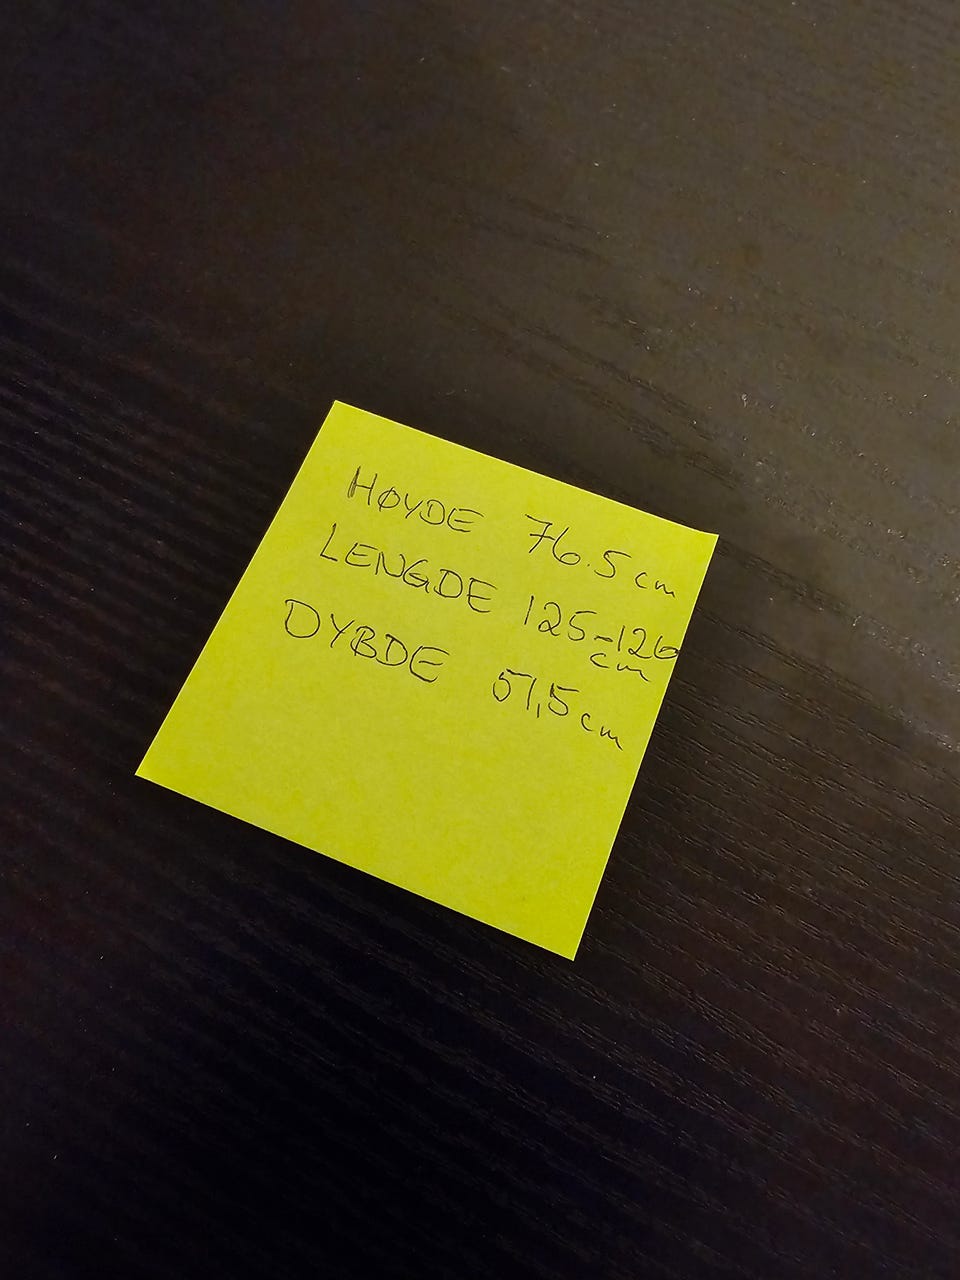 HØYDE 76.5 cm
LENGDE 125-126
cm
DYBDE 57,5 cm